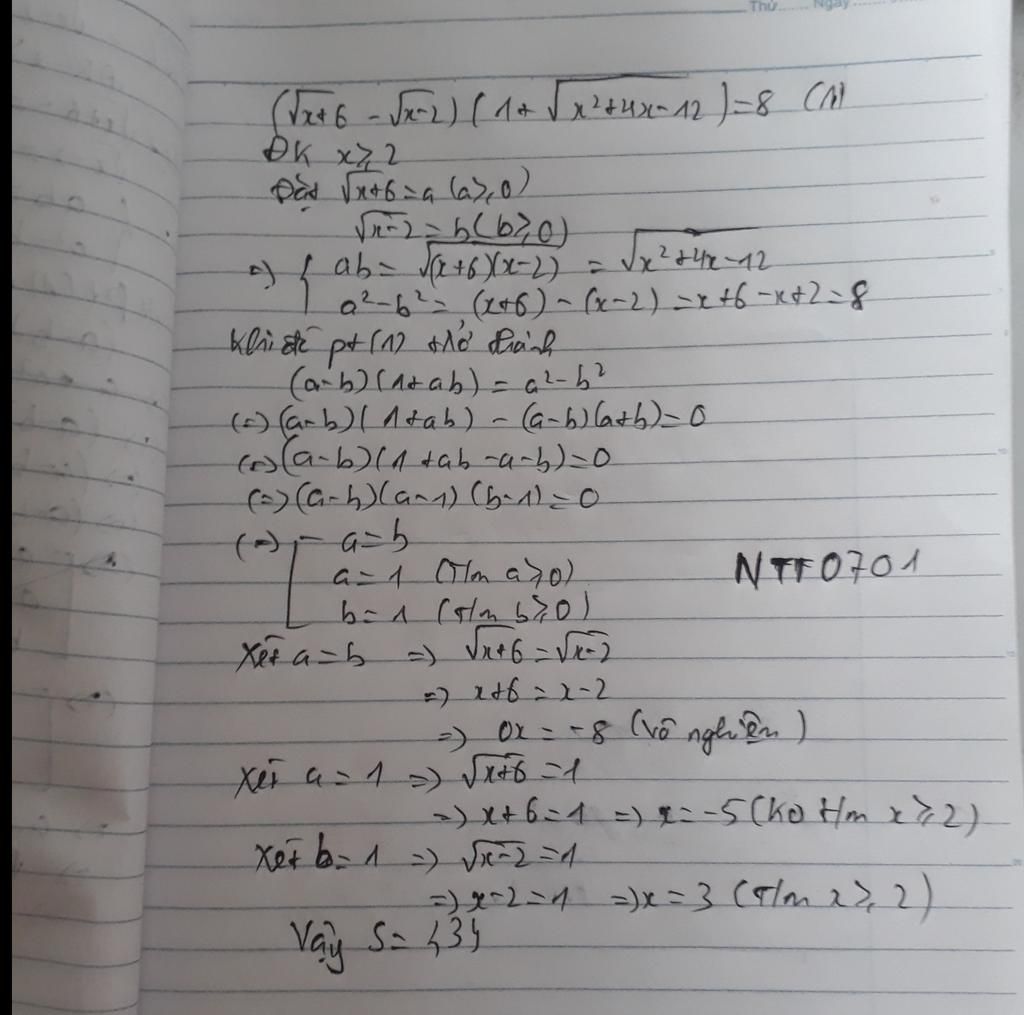 Thứ...... Ngày........
(√x+6 - √x-2)(1+√x²+4x-12)=8 (1)
ĐK x≥2
Đặt √x+6=a (a≥0)
√x-2=b(b≥0)
=> { ab= √(x+6)(x-2) = √x²+4x-12
a²-b²= (x+6)-(x-2)=x+6-x+2=8
Khi đó pt(1) trở thành
(a-b)(1+ab)=a²-b²
(=)(a-b)(1+ab)-(a-b)(a+b)=0
(=)(a-b)(1+ab-a-b)=0
(=)(a-b)(a-1)(b-1)=0
(=) [ a=b
a=1 (T/m a≥0)
NTT0701
b=1 (T/m b≥0)
Xét a=b => √x+6=√x-2
=> x+6=x-2
=> 0x=-8 (Vô nghiệm)
Xét a=1 => √x+6=1
=> x+6=1 => x=-5(Ko t/m x≥2)
Xét b=1 => √x-2=1
=> x-2=1 =>x=3 (T/m x≥2)
Vậy S={3}